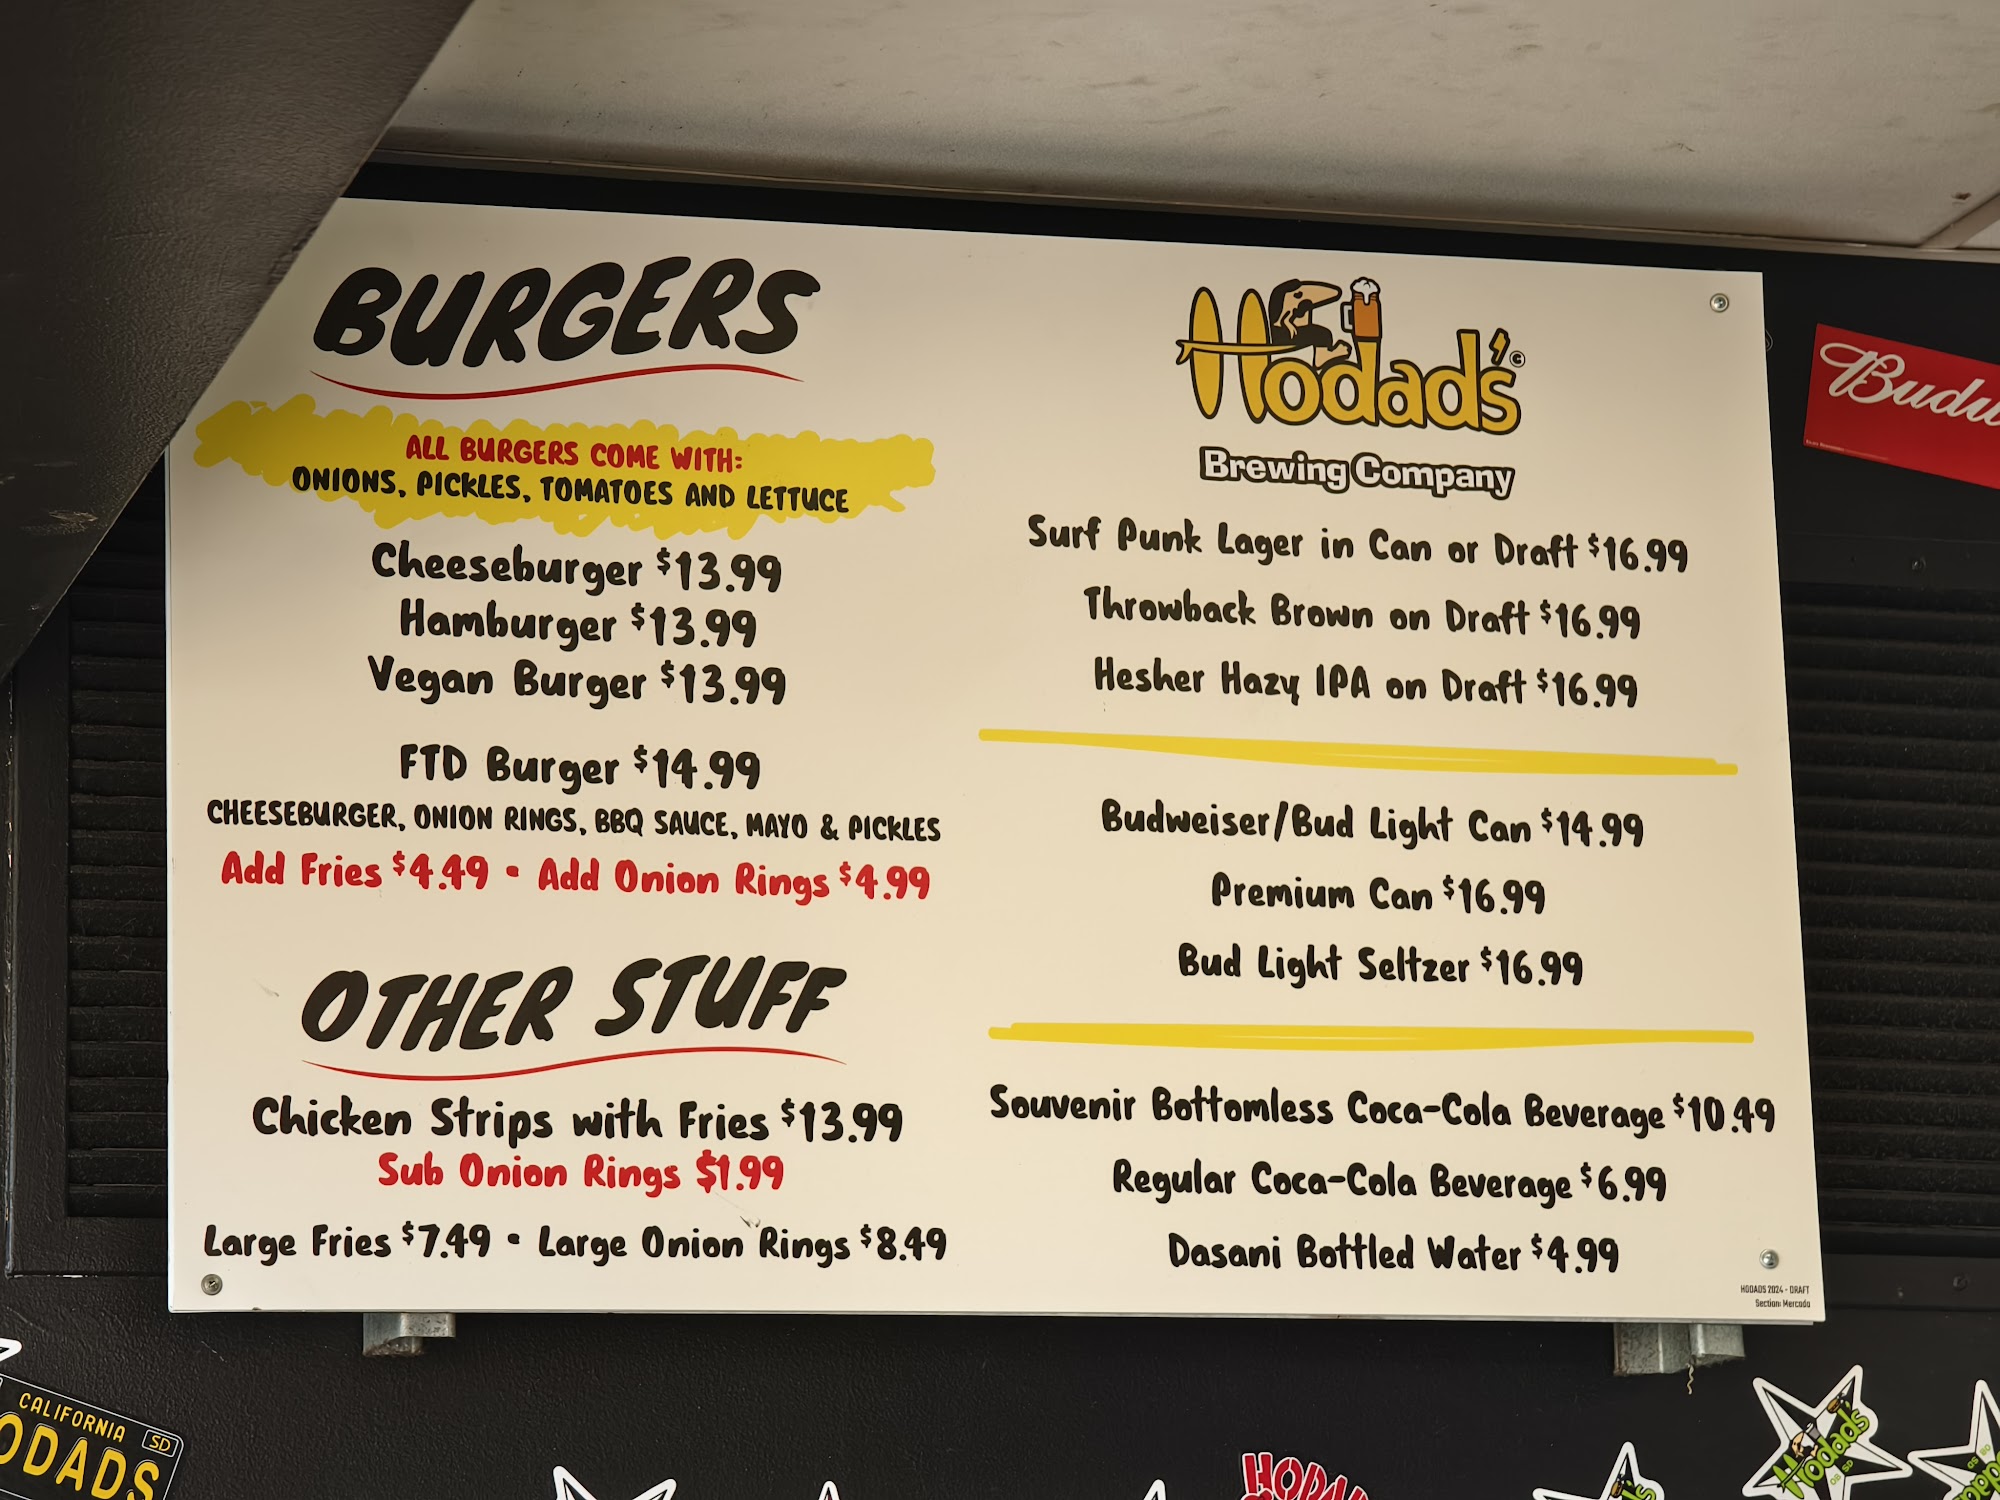 BURGERS
ALL BURGERS COME WITH:
ONIONS, PICKLES, TOMATOES AND LETTUCE
Cheeseburger $13.99
Hamburger $13.99
Vegan Burger $13.99
FTD Burger $14.99
CHEESEBURGER, ONION RINGS, BBQ SAUCE, MAYO & PICKLES
Add Fries $4.49 • Add Onion Rings $4.99
OTHER STUFF
Chicken Strips with Fries $13.99
Sub Onion Rings $1.99
Large Fries $7.49 • Large Onion Rings $8.49
Hodad's ©
Brewing Company
Surf Punk Lager in Can or Draft $16.99
Throwback Brown on Draft $16.99
Hesher Hazy IPA on Draft $16.99
Budweiser/Bud Light Can $14.99
Premium Can $16.99
Bud Light Seltzer $16.99
Souvenir Bottomless Coca-Cola Beverage $10.49
Regular Coca-Cola Beverage $6.99
Dasani Bottled Water $4.99
HODADS 2024 - DRAFT
Section: Mercado
Budw
CALIFORNIA
SD
ODADS
HODA
Hodads
OB SD